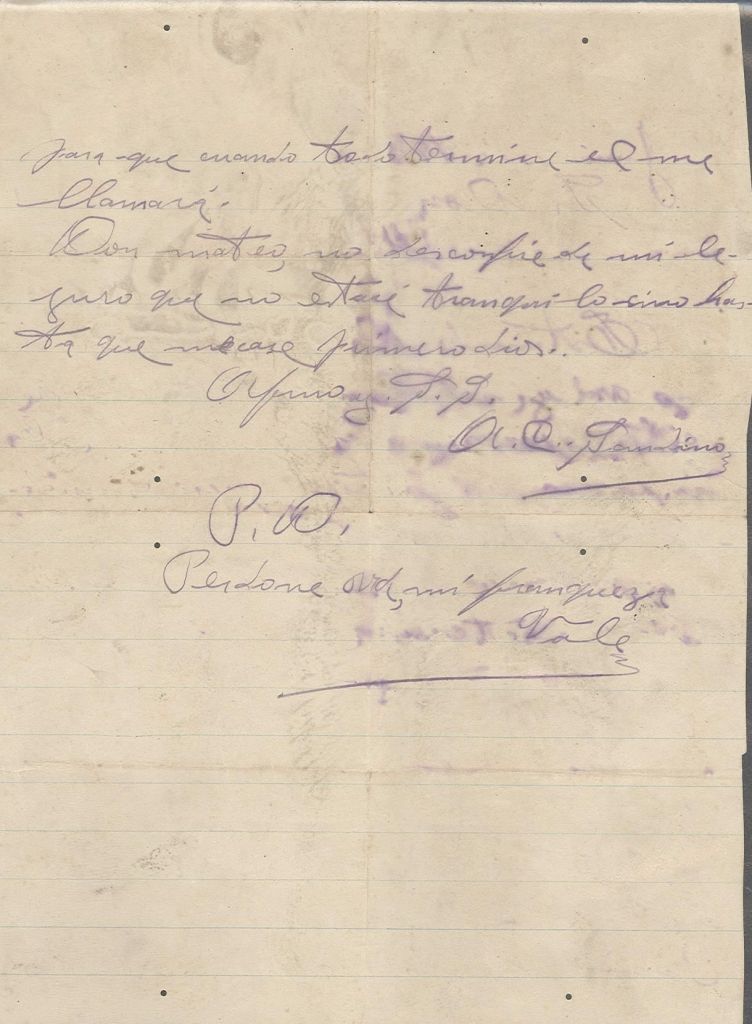 para que cuando todo termine el me
llamará.
Don mateo, no desconfie de mi se-
guro que no estaré tranquilo sino has-
ta que me case primero Dios..
S. S.
A. C.
P. D.
Perdone Vd, mi franqueza
Vale